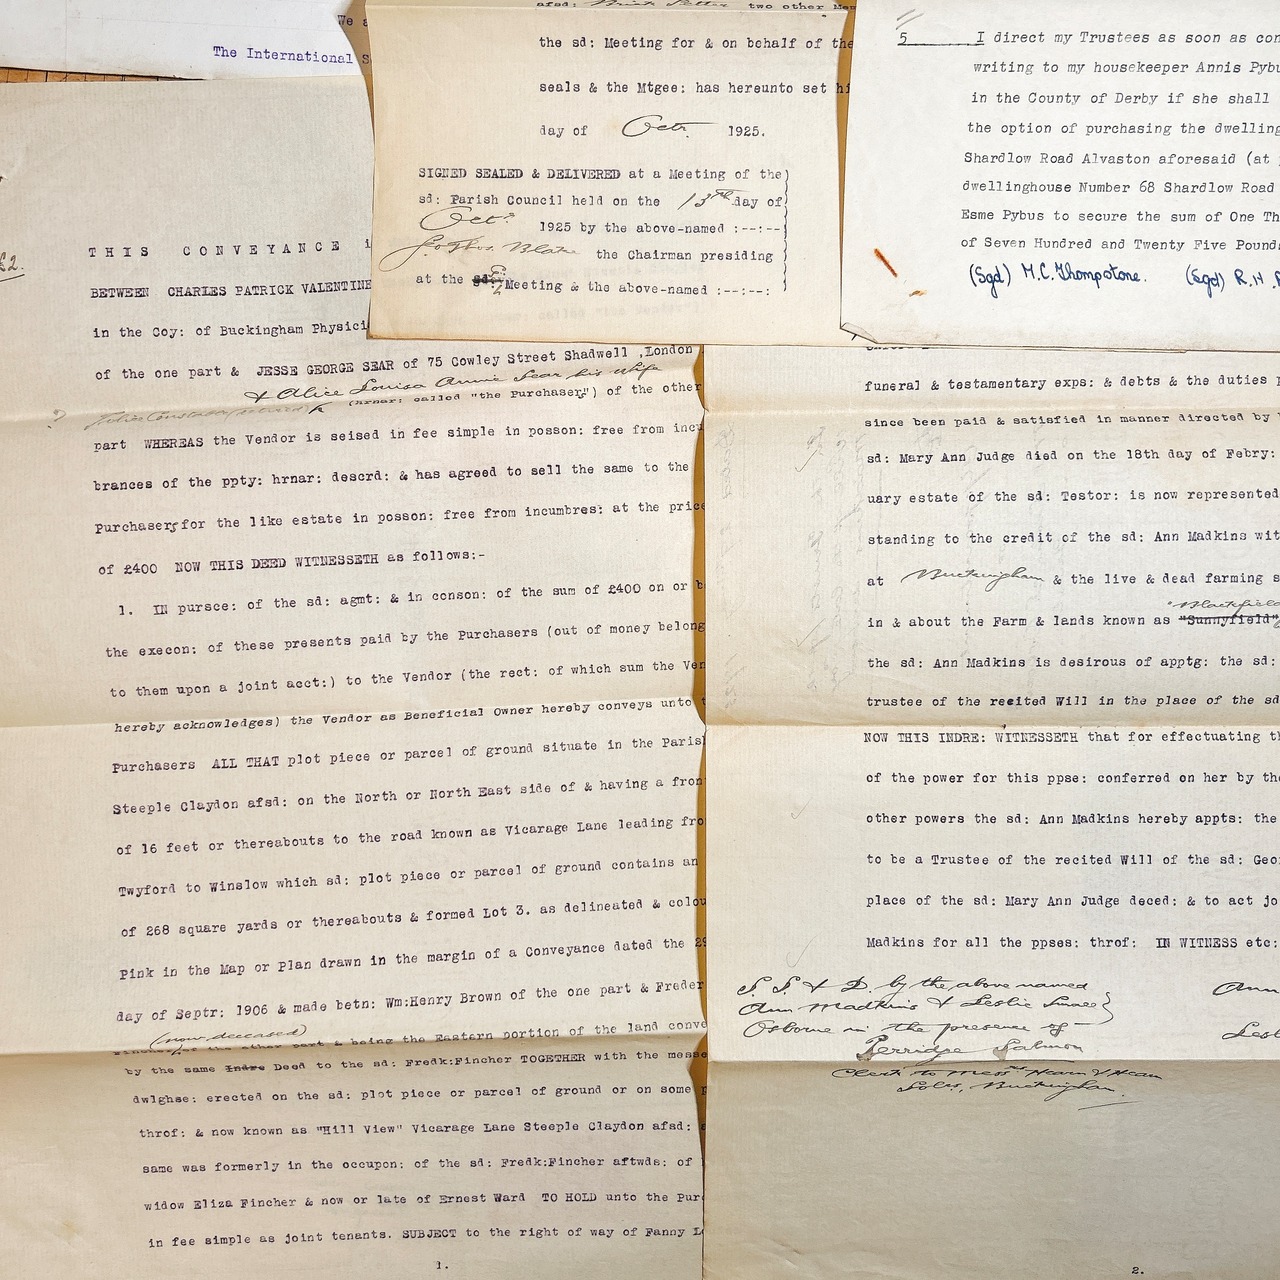 We a
The International S
£2.
THIS CONVEYANCE i
BETWEEN CHARLES PATRICK VALENTINE
in the Coy: of Buckingham Physici
of the one part & JESSE GEORGE SEAR of 75 Cowley Street Shadwell ,London
& Alice Louisa Annie Sear his Wife
? (hrnar: called "the Purchasers") of the other
part WHEREAS the Vendor is seised in fee simple in posson: free from incu
brances of the ppty: hrnar: descrd: & has agreed to sell the same to the
Purchasers for the like estate in posson: free from incumbres: at the price
of £400 NOW THIS DEED WITNESSETH as follows:-
1. IN pursce: of the sd: agmt: & in conson: of the sum of £400 on or b
the execon: of these presents paid by the Purchasers (out of money belong
to them upon a joint acct:) to the Vendor (the rect: of which sum the Ven
hereby acknowledges) the Vendor as Beneficial Owner hereby conveys unto t
Purchasers ALL THAT plot piece or parcel of ground situate in the Paris
Steeple Claydon afsd: on the North or North East side of & having a fron
of 16 feet or thereabouts to the road known as Vicarage Lane leading fro
Twyford to Winslow which sd: plot piece or parcel of ground contains an
of 268 square yards or thereabouts & formed Lot 3. as delineated & colou
Pink in the Map or Plan drawn in the margin of a Conveyance dated the 29
day of Septr: 1906 & made betn: Wm:Henry Brown of the one part & Freder
(now deceased)
Fincher of the other part & being the Eastern portion of the land conve
by the same Indre Deed to the sd: Fredk:Fincher TOGETHER with the messe
dwlghse: erected on the sd: plot piece or parcel of ground or on some p
throf: & now known as "Hill View" Vicarage Lane Steeple Claydon afsd: a
same was formerly in the occupon: of the sd: Fredk:Fincher aftwds: of
widow Eliza Fincher & now or late of Ernest Ward TO HOLD unto the Pur
in fee simple as joint tenants. SUBJECT to the right of way of Fanny Le
1.
afsd: two other Mem
the sd: Meeting for & on behalf of the
seals & the Mtgee: has hereunto set hi
day of Octr. 1925.
SIGNED SEALED & DELIVERED at a Meeting of the
sd: Parish Council held on the 13th day of
Octr. 1925 by the above-named :--:--
Jo. Thos. Blake the Chairman presiding
at the sd: Meeting & the above-named :--:--:
5 I direct my Trustees as soon as con
writing to my housekeeper Annis Pybu
in the County of Derby if she shall
the option of purchasing the dwelling
Shardlow Road Alvaston aforesaid (at
dwellinghouse Number 68 Shardlow Road
Esme Pybus to secure the sum of One Th
of Seven Hundred and Twenty Five Pound
(Sgd) M.C. Thompstone. (Sgd) R.H.
funeral & testamentary exps: & debts & the duties p
since been paid & satisfied in manner directed by
sd: Mary Ann Judge died on the 18th day of Febry:
uary estate of the sd: Testor: is now represented
standing to the credit of the sd: Ann Madkins wit
at Buckingham & the live & dead farming s
"Blackfield
in & about the Farm & lands known as "Sunnyfield"
the sd: Ann Madkins is desirous of apptg: the sd:
trustee of the recited Will in the place of the sd
NOW THIS INDRE: WITNESSETH that for effectuating th
of the power for this ppse: conferred on her by the
other powers the sd: Ann Madkins hereby appts: the
to be a Trustee of the recited Will of the sd: Geo
place of the sd: Mary Ann Judge deced: & to act jo
Madkins for all the ppses: throf: IN WITNESS etc:
S. S. & D. by the above named
Ann Madkins & Leslie
Osborne in the presence of —
Perridge Salmon
Clerk to Messrs Hearn & Hearn
Solrs, Buckingham
Ann
Lesl
2.